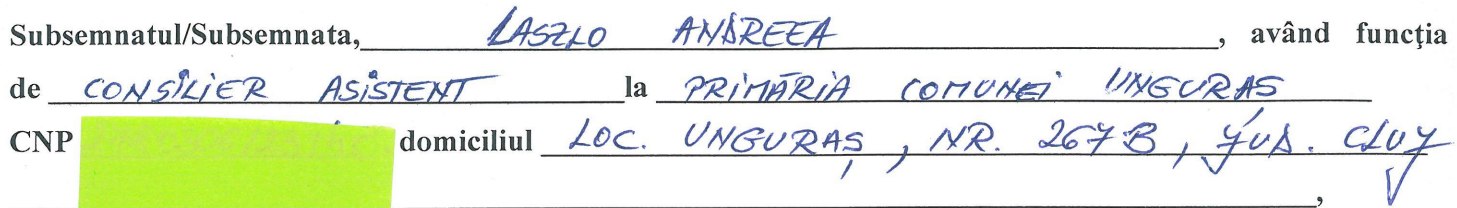 Subsemnatul/Subsemnata, LASZLO ANDREEA, având funcţia
de CONSILIER ASISTENT la PRIMĂRIA COMUNEI UNGURAS
CNP domiciliul LOC. UNGURAȘ, NR. 267B, JUD. CLUJ
,